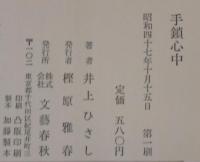 手鎖心中
昭和四十七年十月十五日　第一刷
定価　五八〇円
著者　井上ひさし
発行者　樫原雅春
発行所　株式会社　文藝春秋
〒一〇二　東京都千代田区紀尾井町三
印刷　凸版印刷
製本　加藤製本